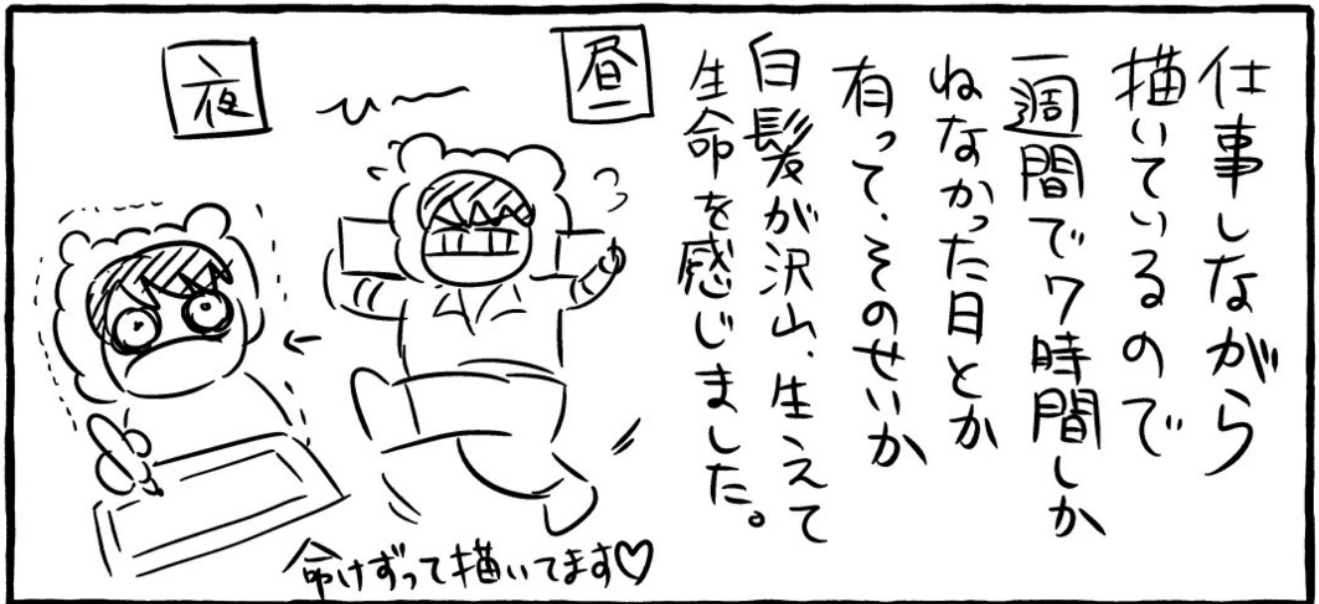 仕事しながら
描いているので
一週間で7時間しか
ねなかった日とか
有って、そのせいか
白髪が沢山、生えて
生命を感じました。
昼
ひー
夜
命けずって描いてます♡